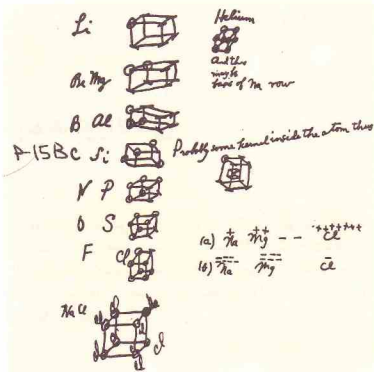 Li
Helium
And this maybe
Be Mg
of Na row
B Al
A-15B C Si
Probably some kernel inside the atom thus
N P
O S
(a) + Na ++ Mg - - +++++++ Cl
F Cl
(b) Na Mg - Cl
Na Cl